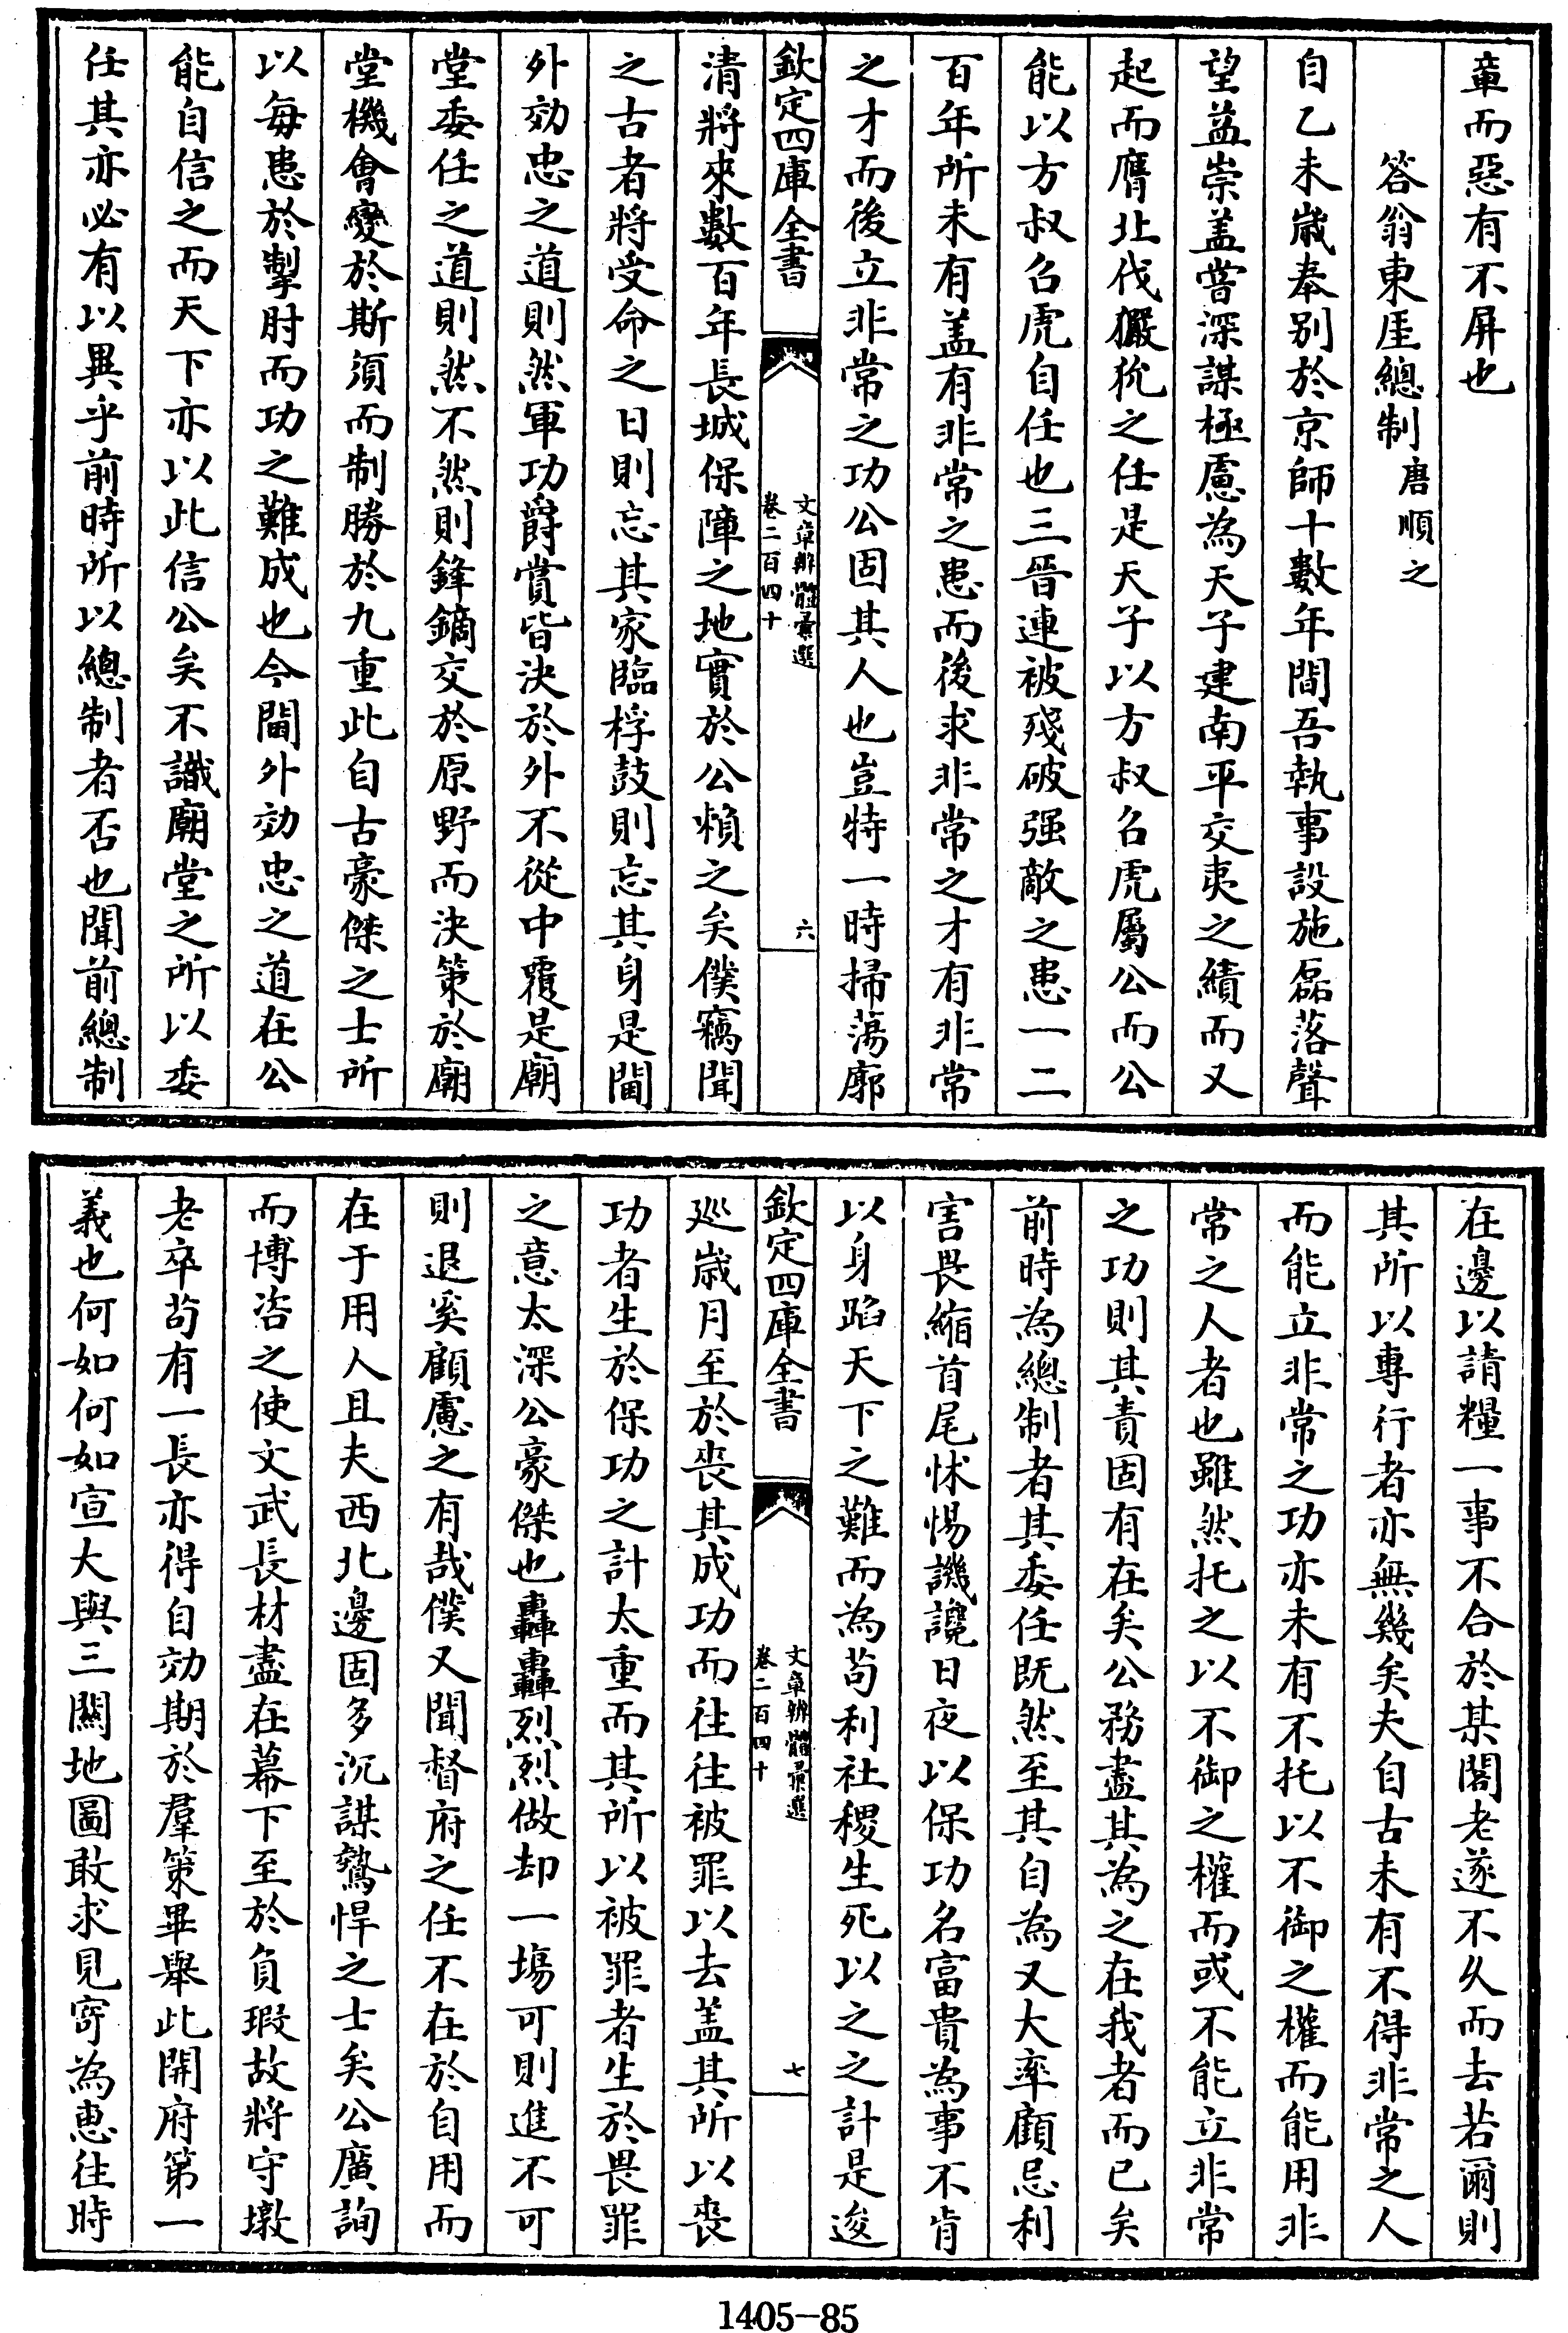 章而惡有不屏也
答翁東厓總制唐順之
自乙未歲奉别於京師十數年間吾執事設施磊落聲
望益崇盖嘗深謀極慮為天子建南平交夷之績而又
起而膺北伐玁狁之任是天子以方叔召虎屬公而公
能以方叔召虎自任也三晉連被殘破强敵之患一二
百年所未有盖有非常之患而後求非常之才有非常
之才而後立非常之功公固其人也豈特一時掃蕩廓
欽定四庫全書
文章辨體彚選
卷二百四十
六
清將來數百年長城保障之地實於公頼之矣僕竊聞
之古者將受命之日則忘其家臨桴鼓則忘其身是閫
外効忠之道則然軍功爵賞皆決於外不從中覆是廟
堂委任之道則然不然則鋒鏑交於原野而決策於廟
堂機會變於斯須而制勝於九重此自古豪傑之士所
以每患於掣肘而功之難成也今閫外効忠之道在公
能自信之而天下亦以此信公矣不識廟堂之所以委
任其亦必有以異乎前時所以總制者否也聞前總制
在邊以請糧一事不合於某閣老遂不久而去若爾則
其所以專行者亦無幾矣夫自古未有不得非常之人
而能立非常之功亦未有不托以不御之權而能用非
常之人者也雖然托之以不御之權而或不能立非常
之功則其責固有在矣公務盡其為之在我者而已矣
前時為總制者其委任既然至其自為又大率顧忌利
害畏縮首尾怵惕譏讒日夜以保功名富貴為事不肯
以身蹈天下之難而為苟利社稷生死以之之計是逡
欽定四庫全書
文章辨體彚選
卷二百四十
七
巡歲月至於喪其成功而往往被罪以去盖其所以喪
功者生於保功之計太重而其所以被罪者生於畏罪
之意太深公豪傑也轟轟烈烈做却一塲可則進不可
則退奚顧慮之有哉僕又聞督府之任不在於自用而
在于用人且夫西北邊固多沉謀鷙悍之士矣公廣詢
而博咨之使文武長材盡在幕下至於負瑕故將守墩
老卒茍有一長亦得自効期於羣策畢舉此開府第一
義也何如何如宣大與三闗地圖敢求見寄為惠往時
1405-85